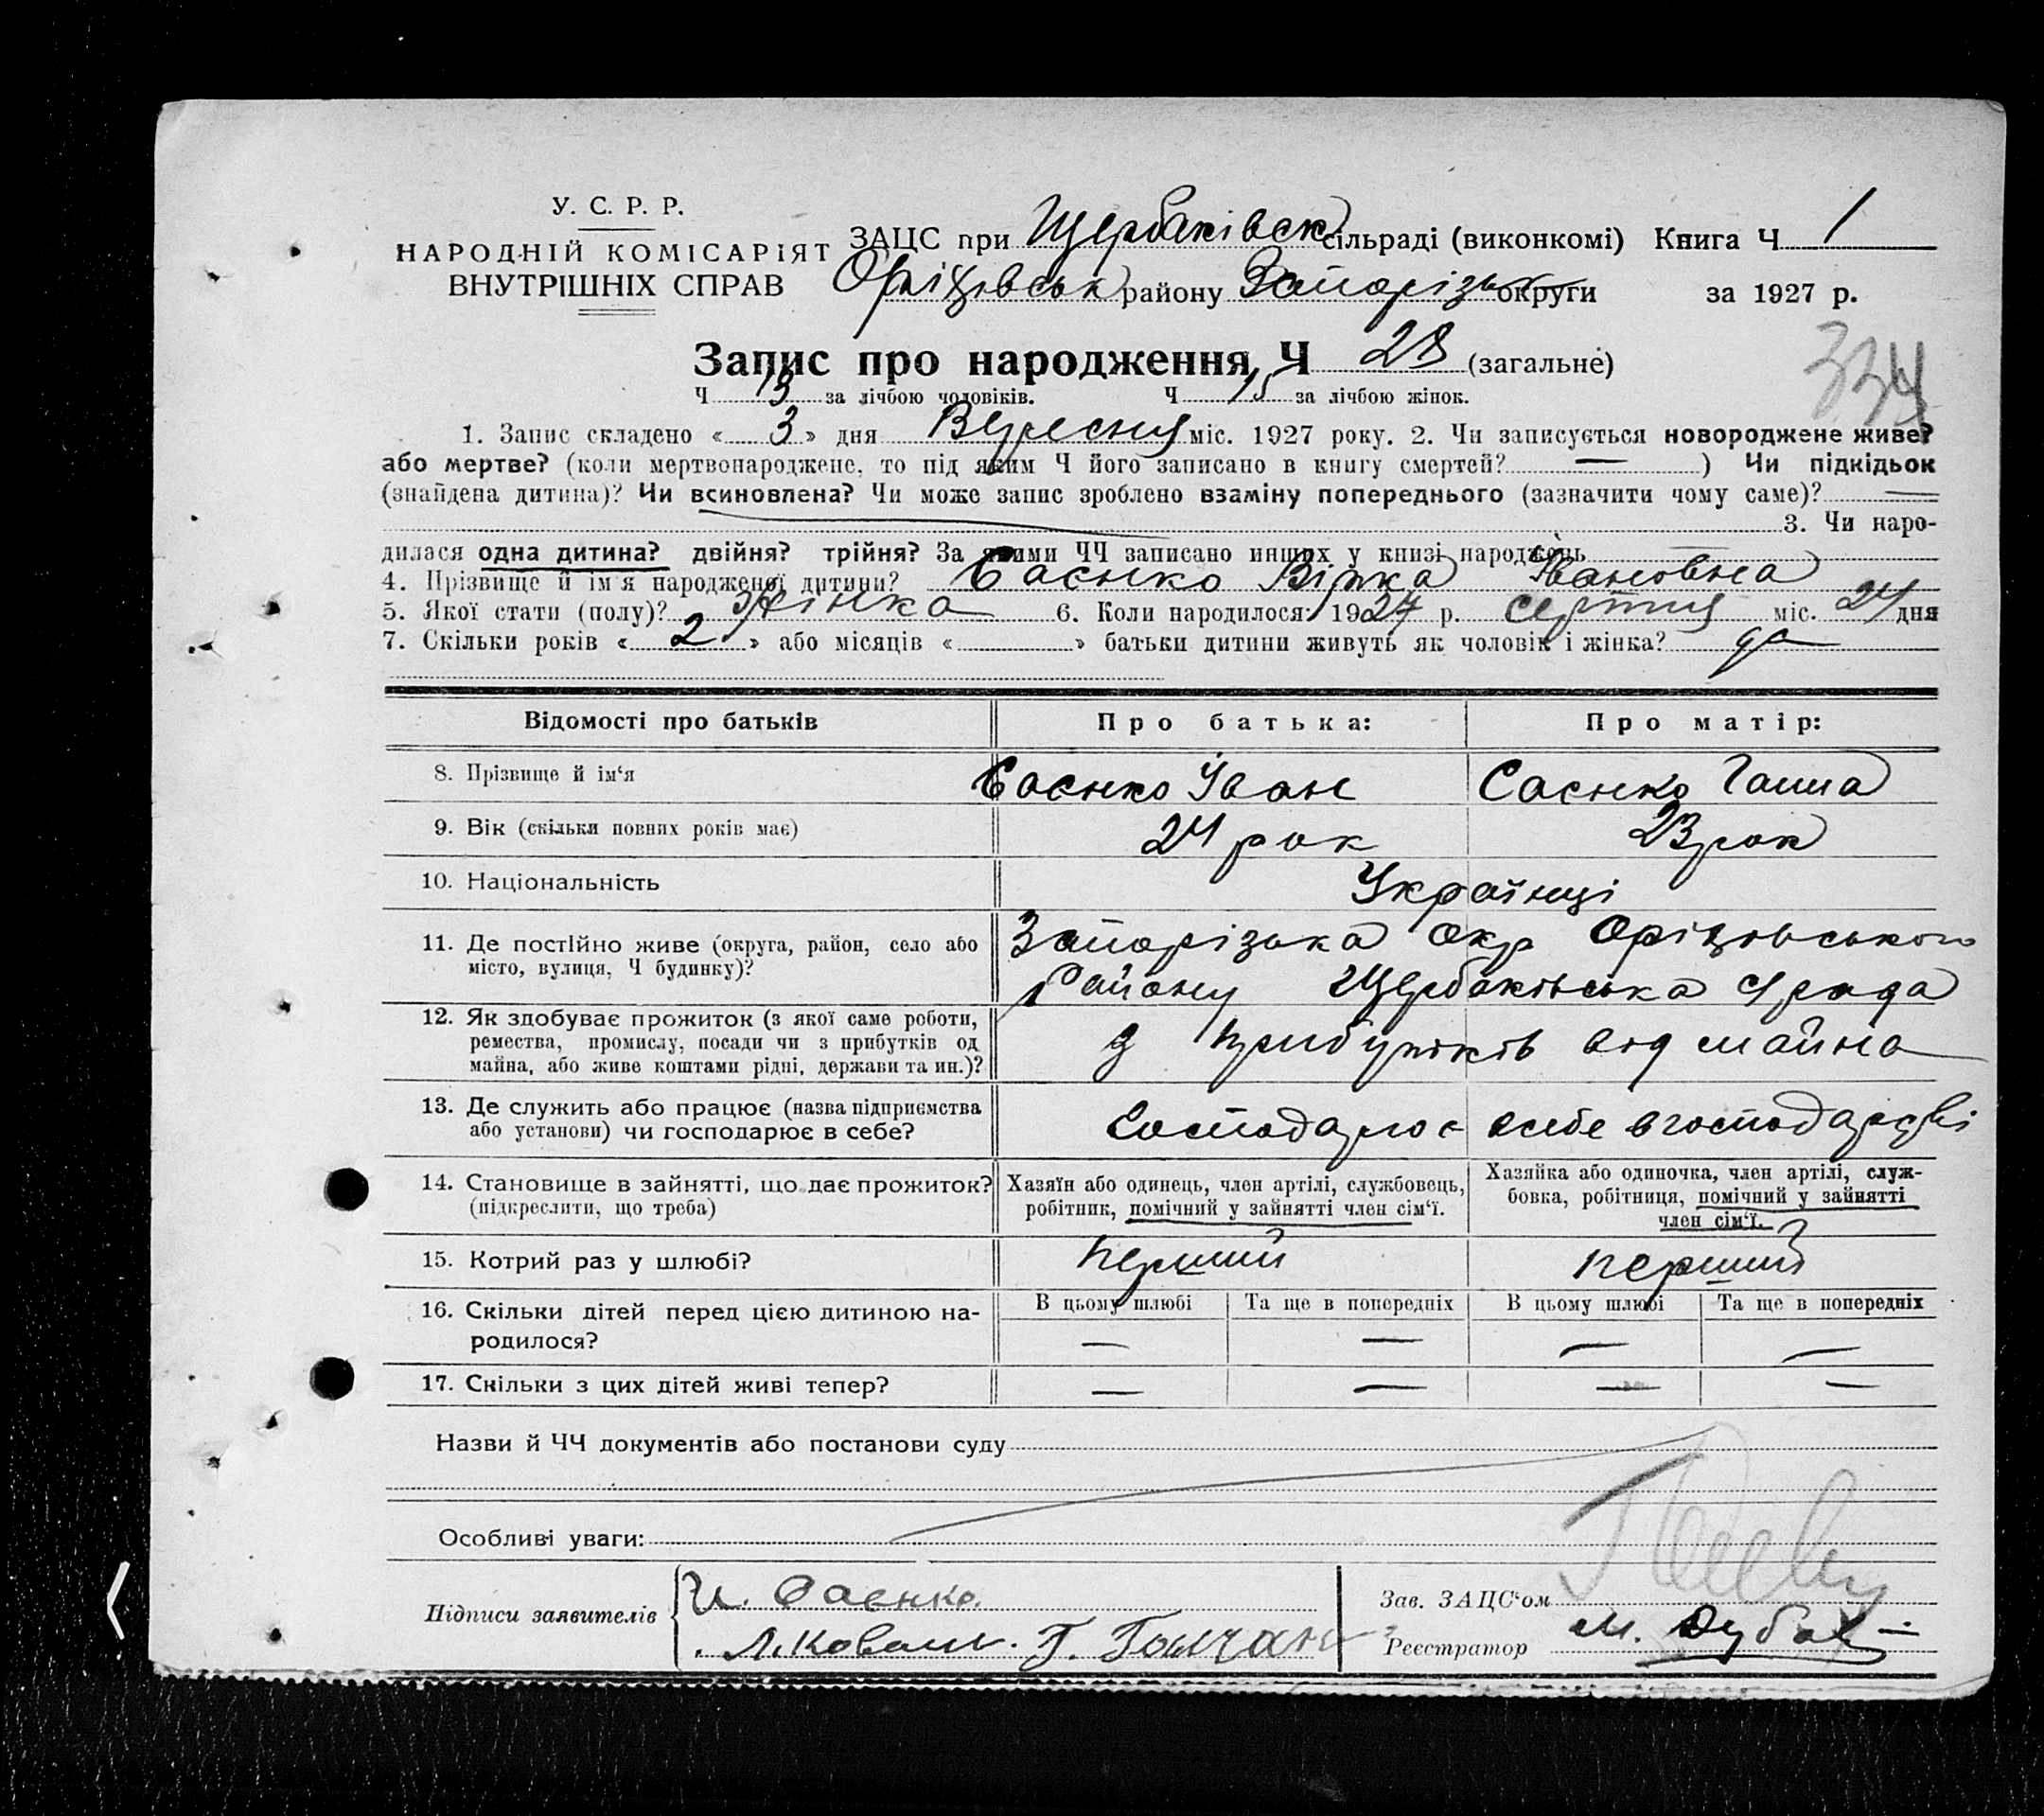 У. С. Р. Р.
НАРОДНІЙ КОМІСАРІЯТ
ВНУТРІШНІХ СПРАВ
ЗАЦС при Щербаківськ сільраді (виконкомі) Книга Ч 1
Оріхівськ району Запорізьк округи за 1927 р.
Запис про народження Ч 28 (загальне)
Ч 13 за лічбою чоловіків. Ч 15 за лічбою жінок.
334
1. Запис складено « 3 » дня Вересня міс. 1927 року. 2. Чи записується новороджене живе?
або мертве? (коли мертвонароджене, то під яким Ч його записано в книгу смертей? — ) Чи підкідьок
(знайдена дитина)? Чи всиновлена? Чи може запис зроблено взаміну попереднього (зазначити чому саме)? —
3. Чи наро-
дилася одна дитина? двійня? трійня? За якими ЧЧ записано инших у книзі народжень
4. Прізвище й ім'я народженої дитини? Саєнко Вірка Івановна
5. Якої стати (полу)? жінка 6. Коли народилося: 1927 р. серпня міс. 24 дня
7. Скільки років « 2 » або місяців « » батьки дитини живуть як чоловік і жінка? да
Відомості про батьків Про батька: Про матір:
8. Прізвище й ім'я Саєнко Іван Саєнко Ганна
9. Вік (скільки повних років має) 24 рок 23 рок
10. Національність Українці
11. Де постійно живе (округа, район, село або Запорізька окр Оріхівського
місто, вулиця, Ч будинку)? Району Щербаківська с/рада
12. Як здобуває прожиток (з якої саме роботи,
ремества, промислу, посади чи з прибутків од з прибутків від майна
майна, або живе коштами рідні, держави та ин.)?
13. Де служить або працює (назва підприємства
або установи) чи господарює в себе? Господарює в себе в господарстві
14. Становище в зайнятті, що дає прожиток? Хазяїн або одинець, член артілі, службовець, Хазяйка або одиночка, член артілі, служ-
(підкреслити, що треба) робітник, помічний у зайнятті член сім'ї. бовка, робітниця, помічний у зайнятті
член сім'ї.
15. Котрий раз у шлюбі? перший перший
16. Скільки дітей перед цією дитиною на- В цьому шлюбі Та ще в попередніх В цьому шлюбі Та ще в попередніх
родилося? — — — —
17. Скільки з цих дітей живі тепер? — — — —
Назви й ЧЧ документів або постанови суду
Особливі уваги:
Підписи заявителів И. Саєнко.
Л. Коваль. Г.
Зав. ЗАЦС'ом
Реєстратор М.